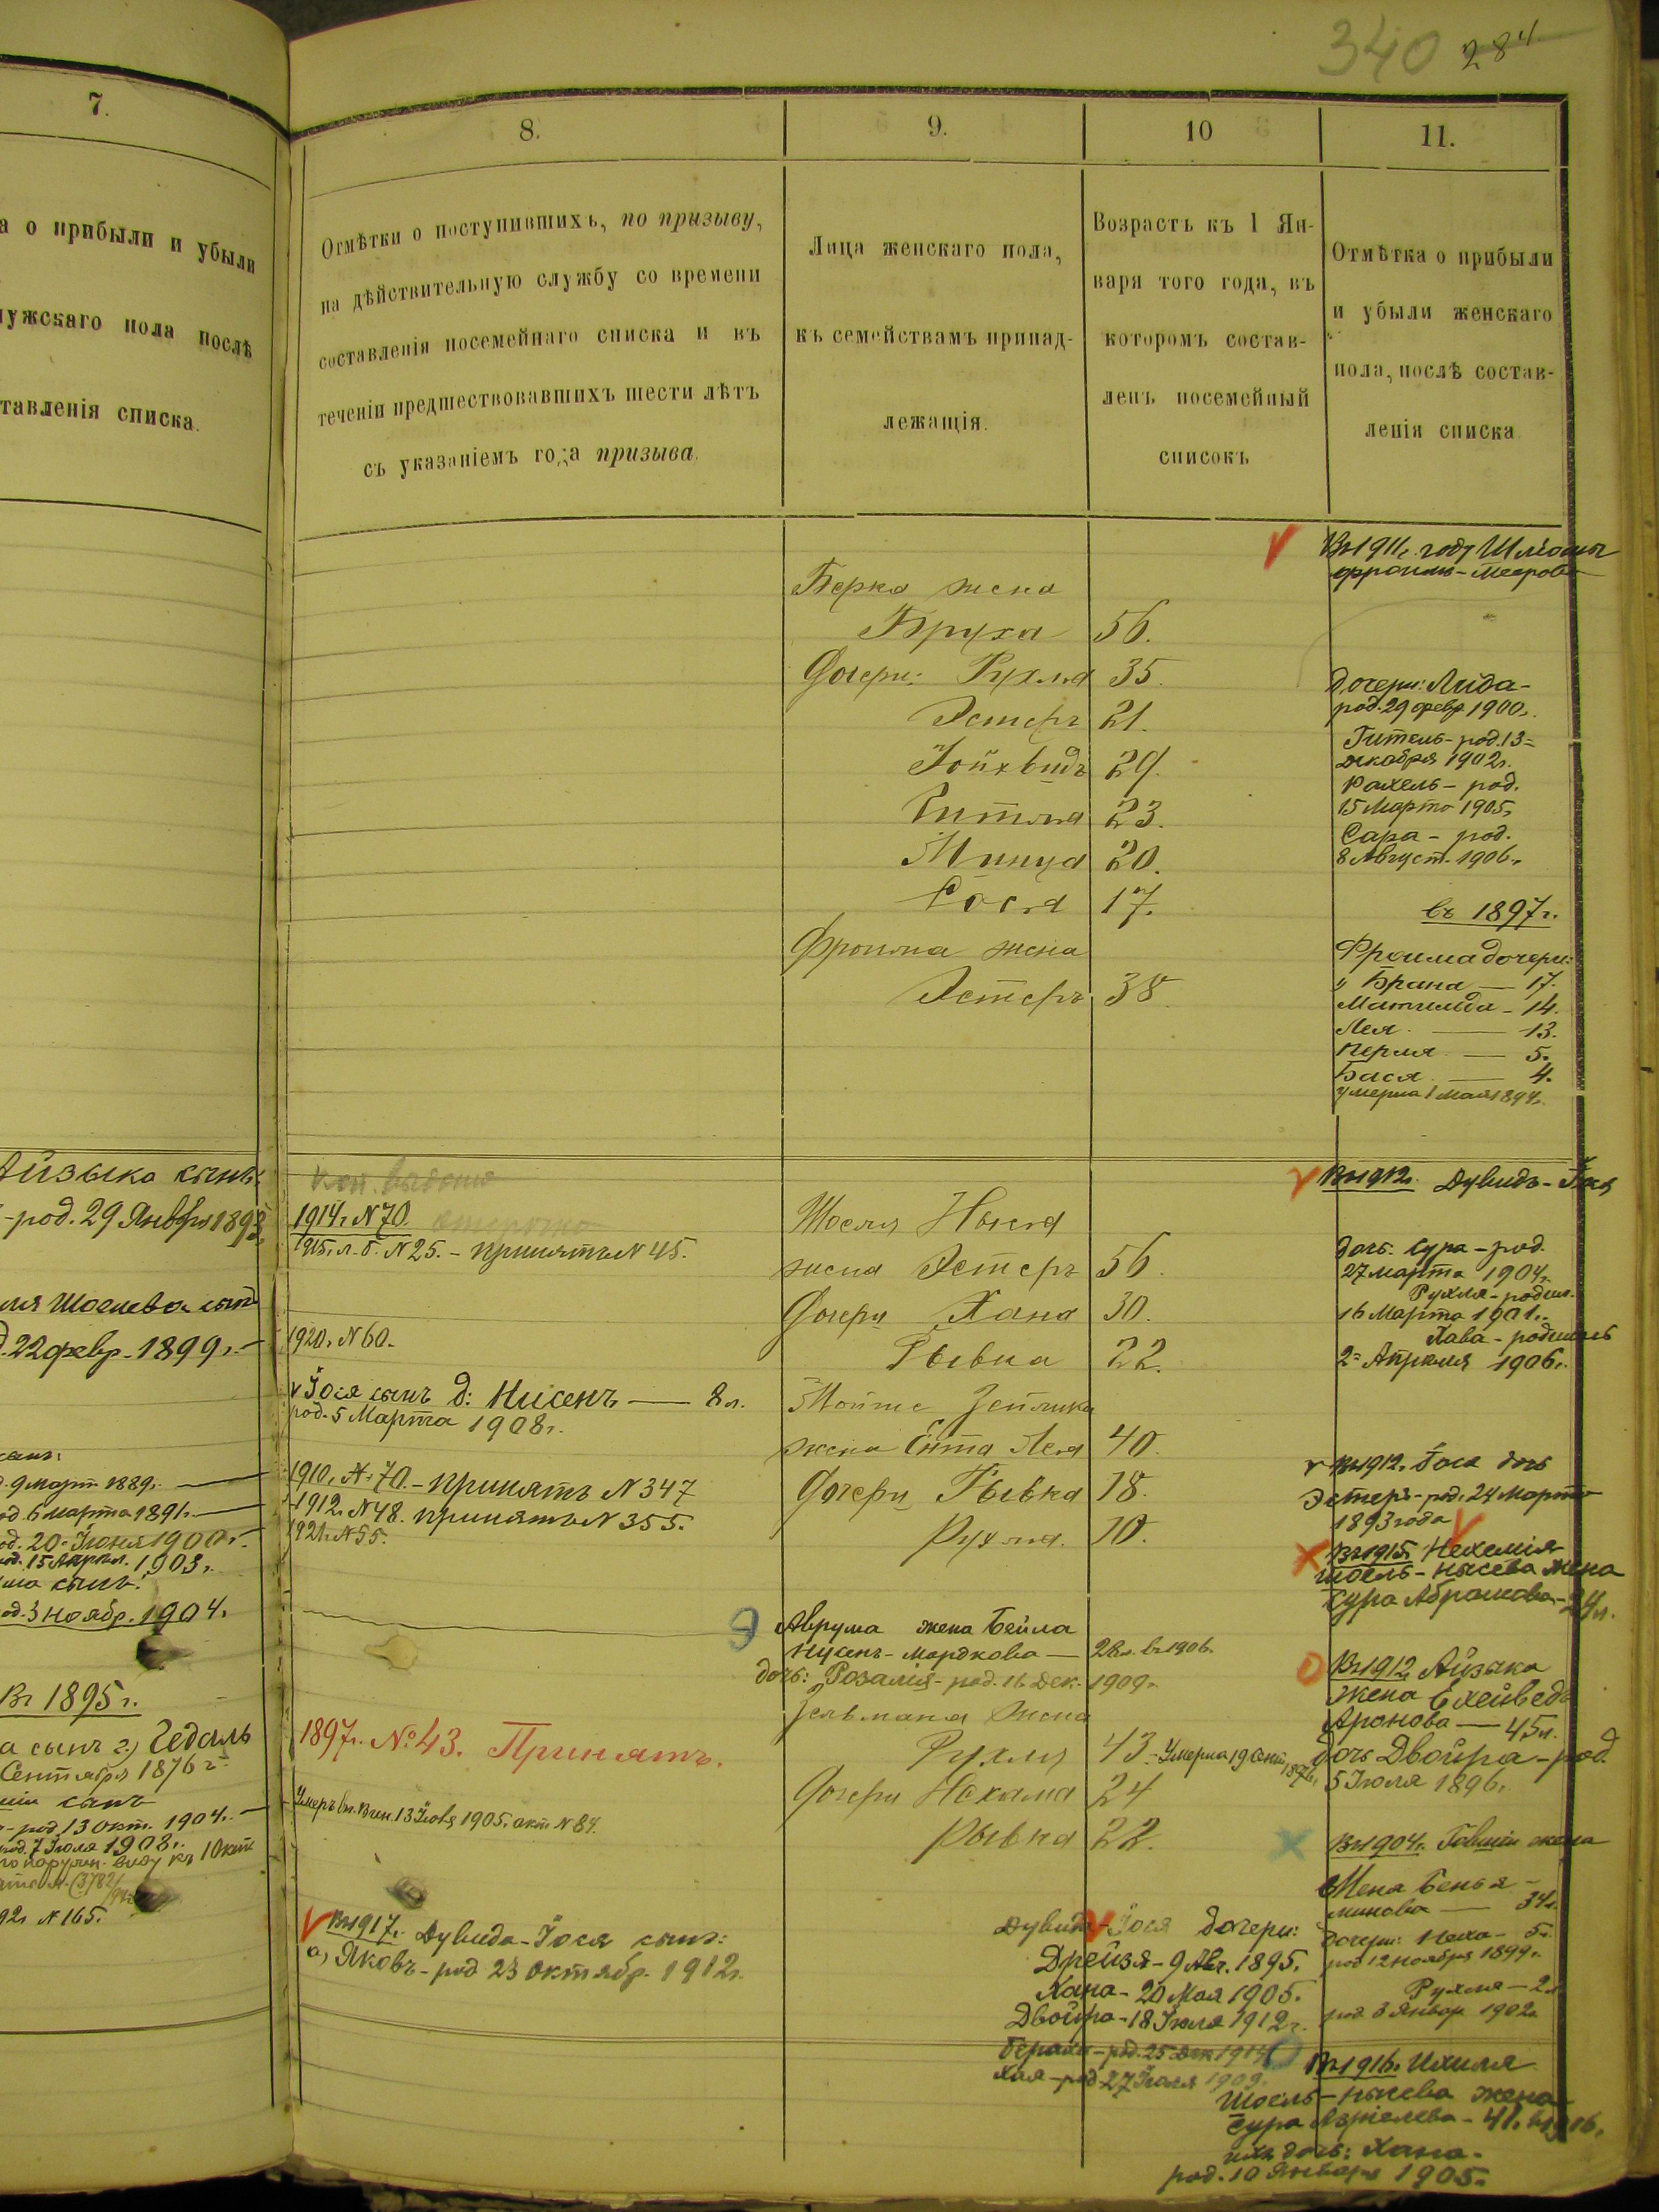 340 284
7.
а о прибыли и убыли
мужскаго пола послѣ
ставленія списка.
Айзыка сынъ
-род. 29 Января 1893
Шоелева сынъ
22 февр. 1899 г.
9 Март 1889 г.
род. 6 марта 1891 г.
род. 20 Іюня 1900 г.
род. 15 Апрѣл. 1903 г.
сынъ:
род. 3 Ноябр. 1904.
Въ 1895 г.
а сынъ г.) Гедаль
Сентября 1876 г.
сынъ
- род 13 окт. 1904 г.
род. 7 Іюля 1908 г.
къ 10 окт
92 г. № 165.
8.
Отмѣтки о поступившихъ, по призыву,
на дѣйствительную службу со времени
составленія посемейнаго списка и въ
теченіи предшествовавшихъ шести лѣтъ
съ указаніемъ года призыва.
1914 г. № 70.
1915 г. л. б. № 25. - принятъ № 45.
1920 г. № 60.
Іося сынъ д: Нисенъ — 8 л.
род. 5 Марта 1908 г.
1910 г. № 70. - принятъ № 347
1912 г. № 48. принятъ № 355.
1921 г. № 55.
1897 г. № 43. Принятъ.
Умеръ 13 Іюня 1905 г. акт № 84.
Въ 1917 г. Дувида-Іося сынъ:
а) Яковъ - род 23 октябр. 1912 г.
9.
Лица женскаго пола,
къ семействамъ принад-
лежащія.
10
Возрастъ къ 1 Ян-
варя того года, въ
которомъ состав-
ленъ посемейный
списокъ
Берка жена
Бруха 56.
Дочери: Рухля 35.
Эстеръ 21.
Іойхвидъ 29.
Гитля 23.
Минця 20.
Сося 17.
Фроима жена
Эстеръ 38
Шоеля Ныся
жена Эстеръ 56.
Дочери Хана 30.
Рывка 22.
Мойше Зейлика
жена Ента Лея 40.
Дочери Рывка 18.
Рухля. 10.
Аврума жена Бейла
Нусенъ-Мордкова — 28 л. въ 1906.
дочь: Розалія - род. 16 Дек. 1909 г.
Зельмана жена
Рухля 43 - Умерла 19 Сент. 1896 г.
Дочери Нехама 24
Рывка 22.
Дувида-Іося дочери:
Дрейзя - 9 Авг. 1895.
Хана - 20 Мая 1905.
Двойра - 18 Іюля 1912 г.
род. 25 дек 1914
Хая - род 27 Іюля 1909.
11.
Отмѣтка о прибыли
и убыли женскаго
пола, послѣ состав-
ленія списка
Въ 1911 г. году Шлёмы
Фроимъ-Меерова
дочери: Лида -
род. 29 февр 1900 г.
Гитель - род. 13
декабря 1902 г.
Рахель - род.
15 Марта 1905 г.
Сара - род.
8 Август. 1906 г.
въ 1897 г.
Фроима дочери:
Брана — 17.
Матильда - 14.
Лея — 13.
Перля — 5.
Бася — 4.
умерла 1 Мая 1894 г.
Въ 1912 г. Дувидъ-Іося
дочь: Сура - род.
27 марта 1904 г.
Рухля - родил.
16 Марта 1901 г.
Хава - родилась
2 Апрѣля 1906 г.
Въ 1912 г. Іося дочь
Эстеръ - род. 24 Марта
1893 года
Въ 1915 Нехемія
Шоель-Нысева жена
Сура Абрамова - 24 л.
Въ 1912 г. Айзыка
жена Ехейведъ
Аронова — 45 л.
дочь Двойра - род
5 Іюля 1896 г.
Въ 1904 г. жена
Мена Бенья-
минова — 34 л.
дочери: Неха - 5 л.
род 12 ноября 1899 г.
Рухля — 2 л
род 3 Январ 1902 г.
Въ 1916 г. Ихиля
Шоель-Нысева жена
Сура Азріелева - 41 г. въ 1916.
ихъ дочь: Хана -
род. 10 Января 1905 г.